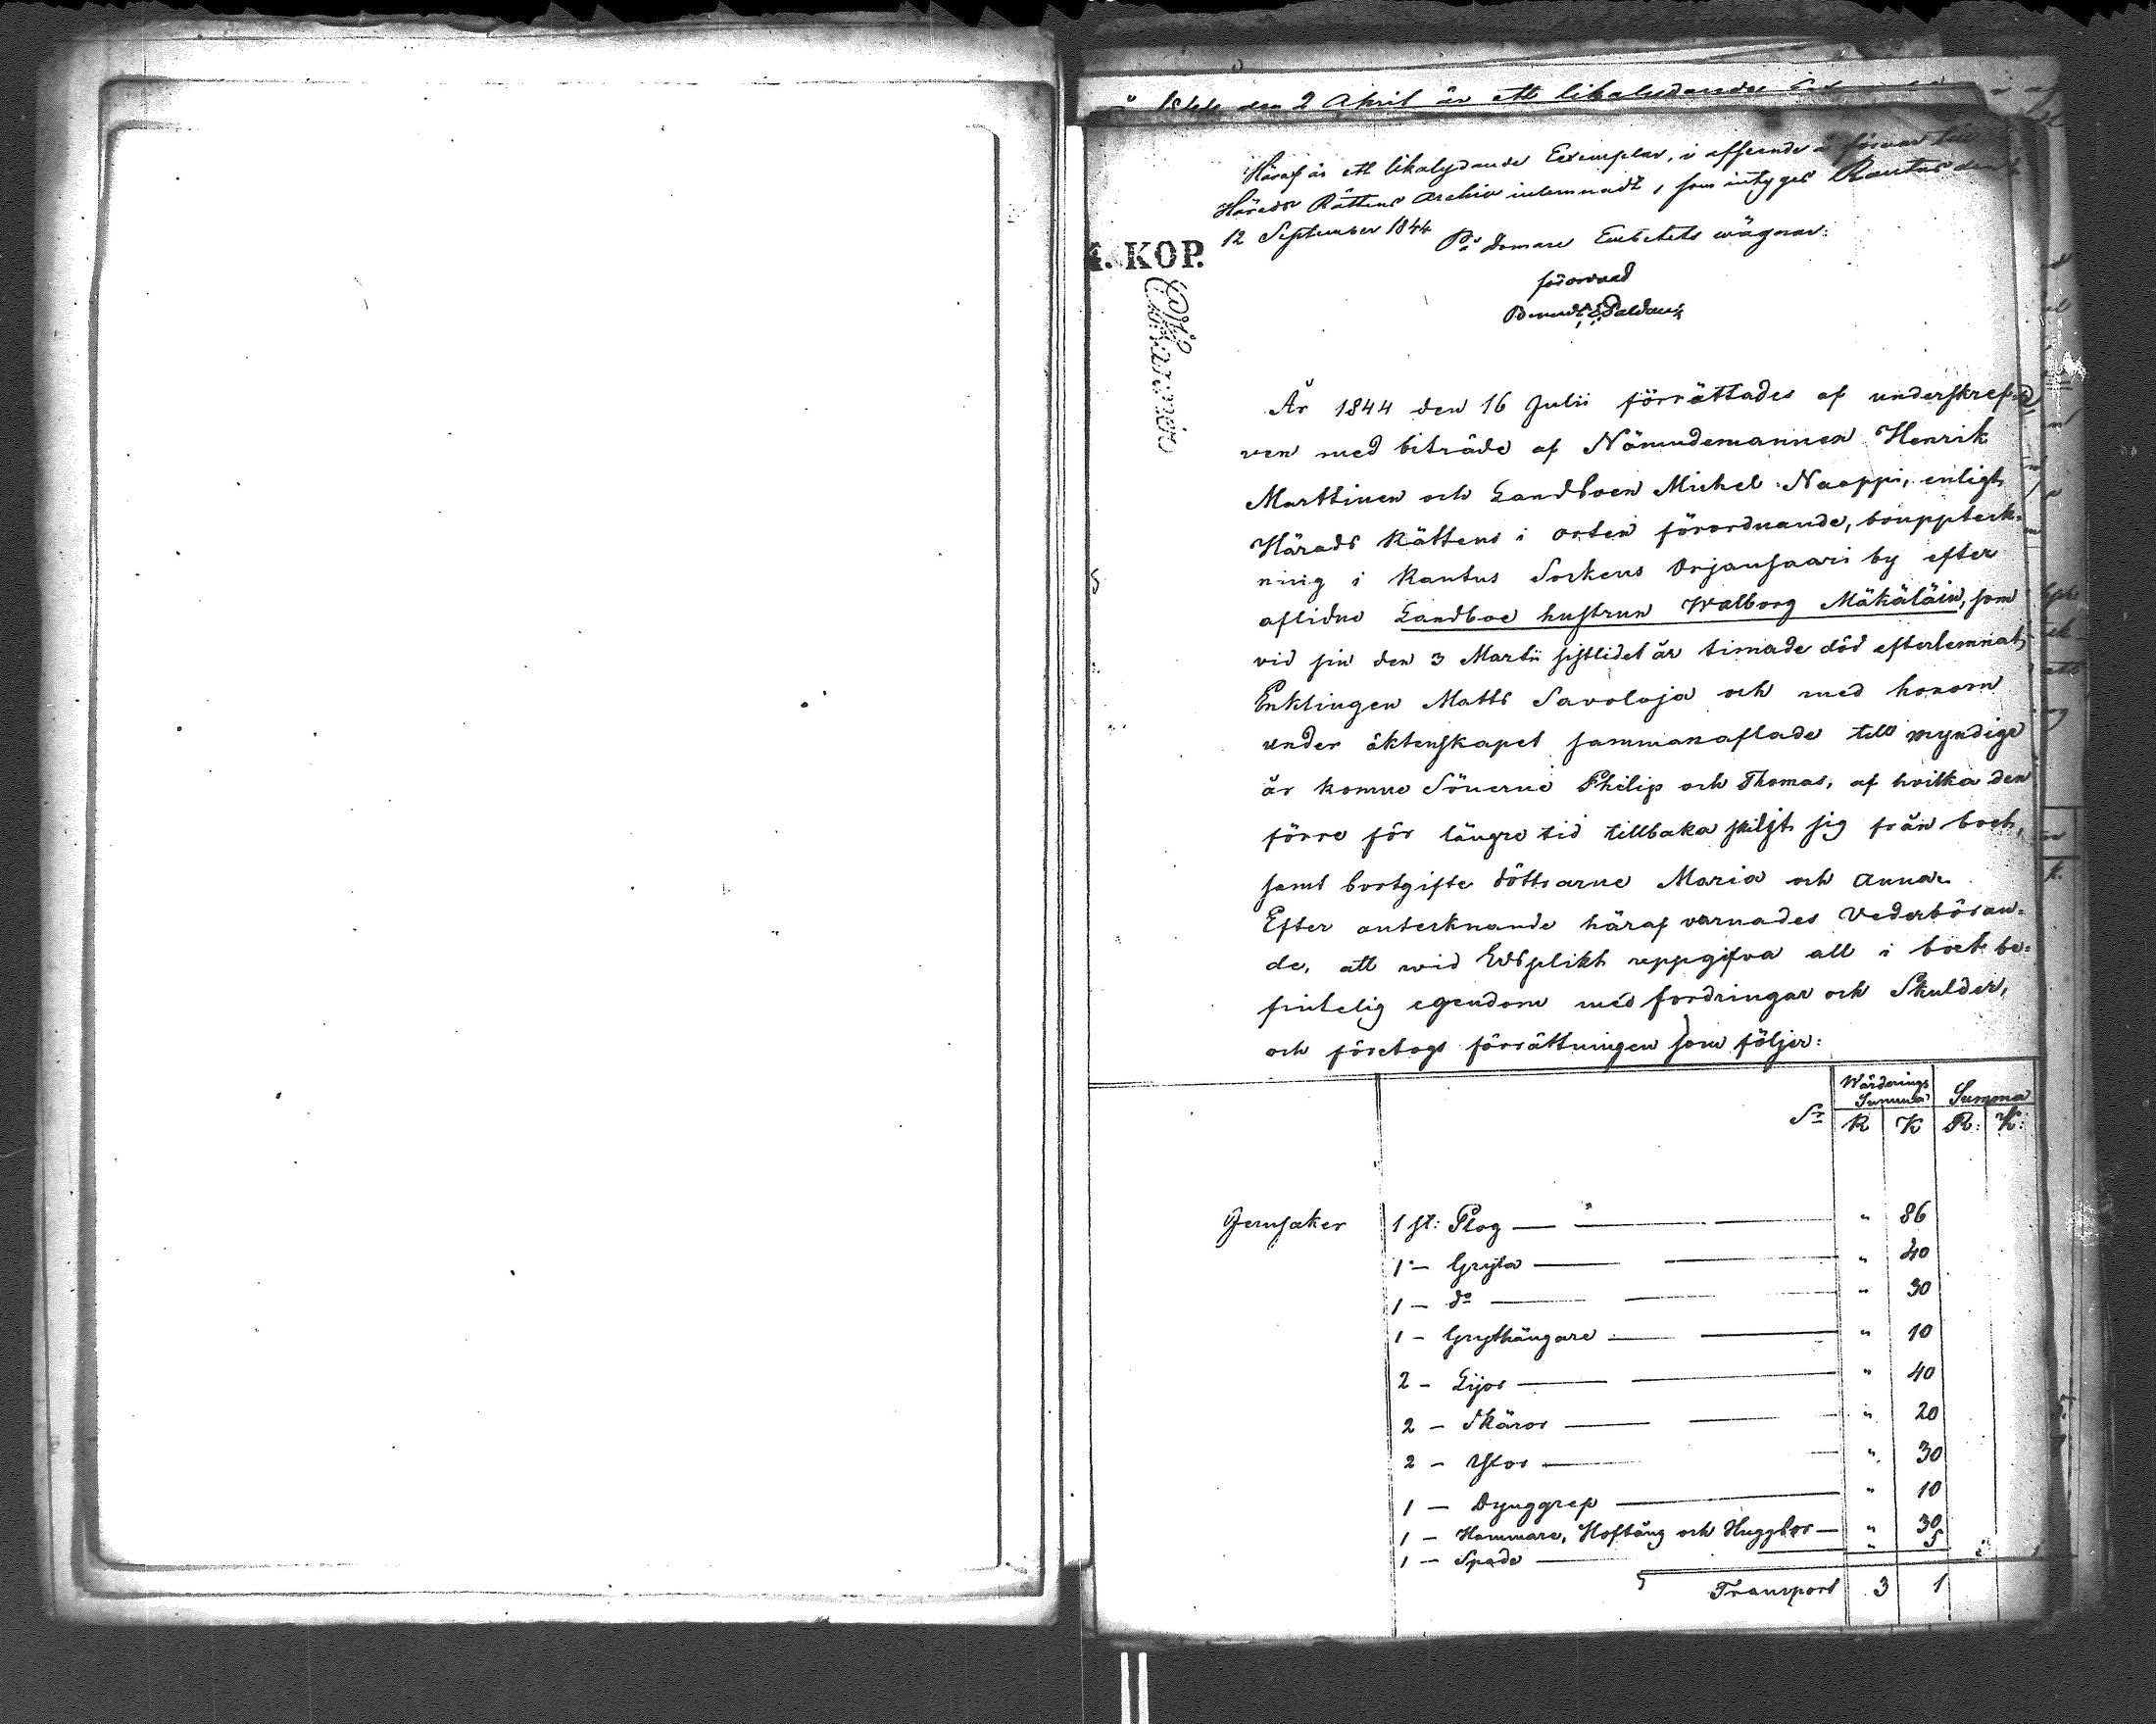 den 2 April är ett likalydande
Häraf är ett likalydande Exemplar, i afseende å förvar
Härads Rättens Archiv inlemnadt, som intygas Rautus den
12 September 1844
På Domare Embetets wägnar:
förordnad
4. KOP.
År 1844 den 16 Julii förrättades af underskref-
ven med biträde af Nämndemannen Henrik
Marttinen och Landboen Michel Naappi, enligt
Härads Rättens i orten förordnande, bouppteck-
ning i Rautus Sockens Orjansaari by efter
aflidne Landboe hustrun Walborg Mäkäläin, som
vid sin den 3 Martii sistlidet år timade död efterlemnat
Enklingen Matts Savoloja och med honom
under äktenskapet sammanaflade till myndige
år komne Sönerne Philip och Thomas, af hvilka den
förre för längre tid tillbaka skiljt sig från boet,
samt bortgifte döttrarne Maria och Anna.
Efter antecknande häraf varnades Vederböran-
de, att wid Edsplikt uppgifva all i boet be-
fintelig egendom med fordringar och Skulder,
och företogs förrättningen som följer:
Wärderings Summa Summa
Sr R K R: K:
Jernsaker 1 st: Plog — " 86
1 — Gryta — " 40
1 — do — " 30
1 — Grythängare — " 10
2 — Lijor — " 40
2 — Skäror — " 20
2 — Yxor — " 30
1 — Dynggrep — " 10
1 — Hammare, Hoftång och Huggbor — " 30
1 — Spade — " 5
Transport 3 1